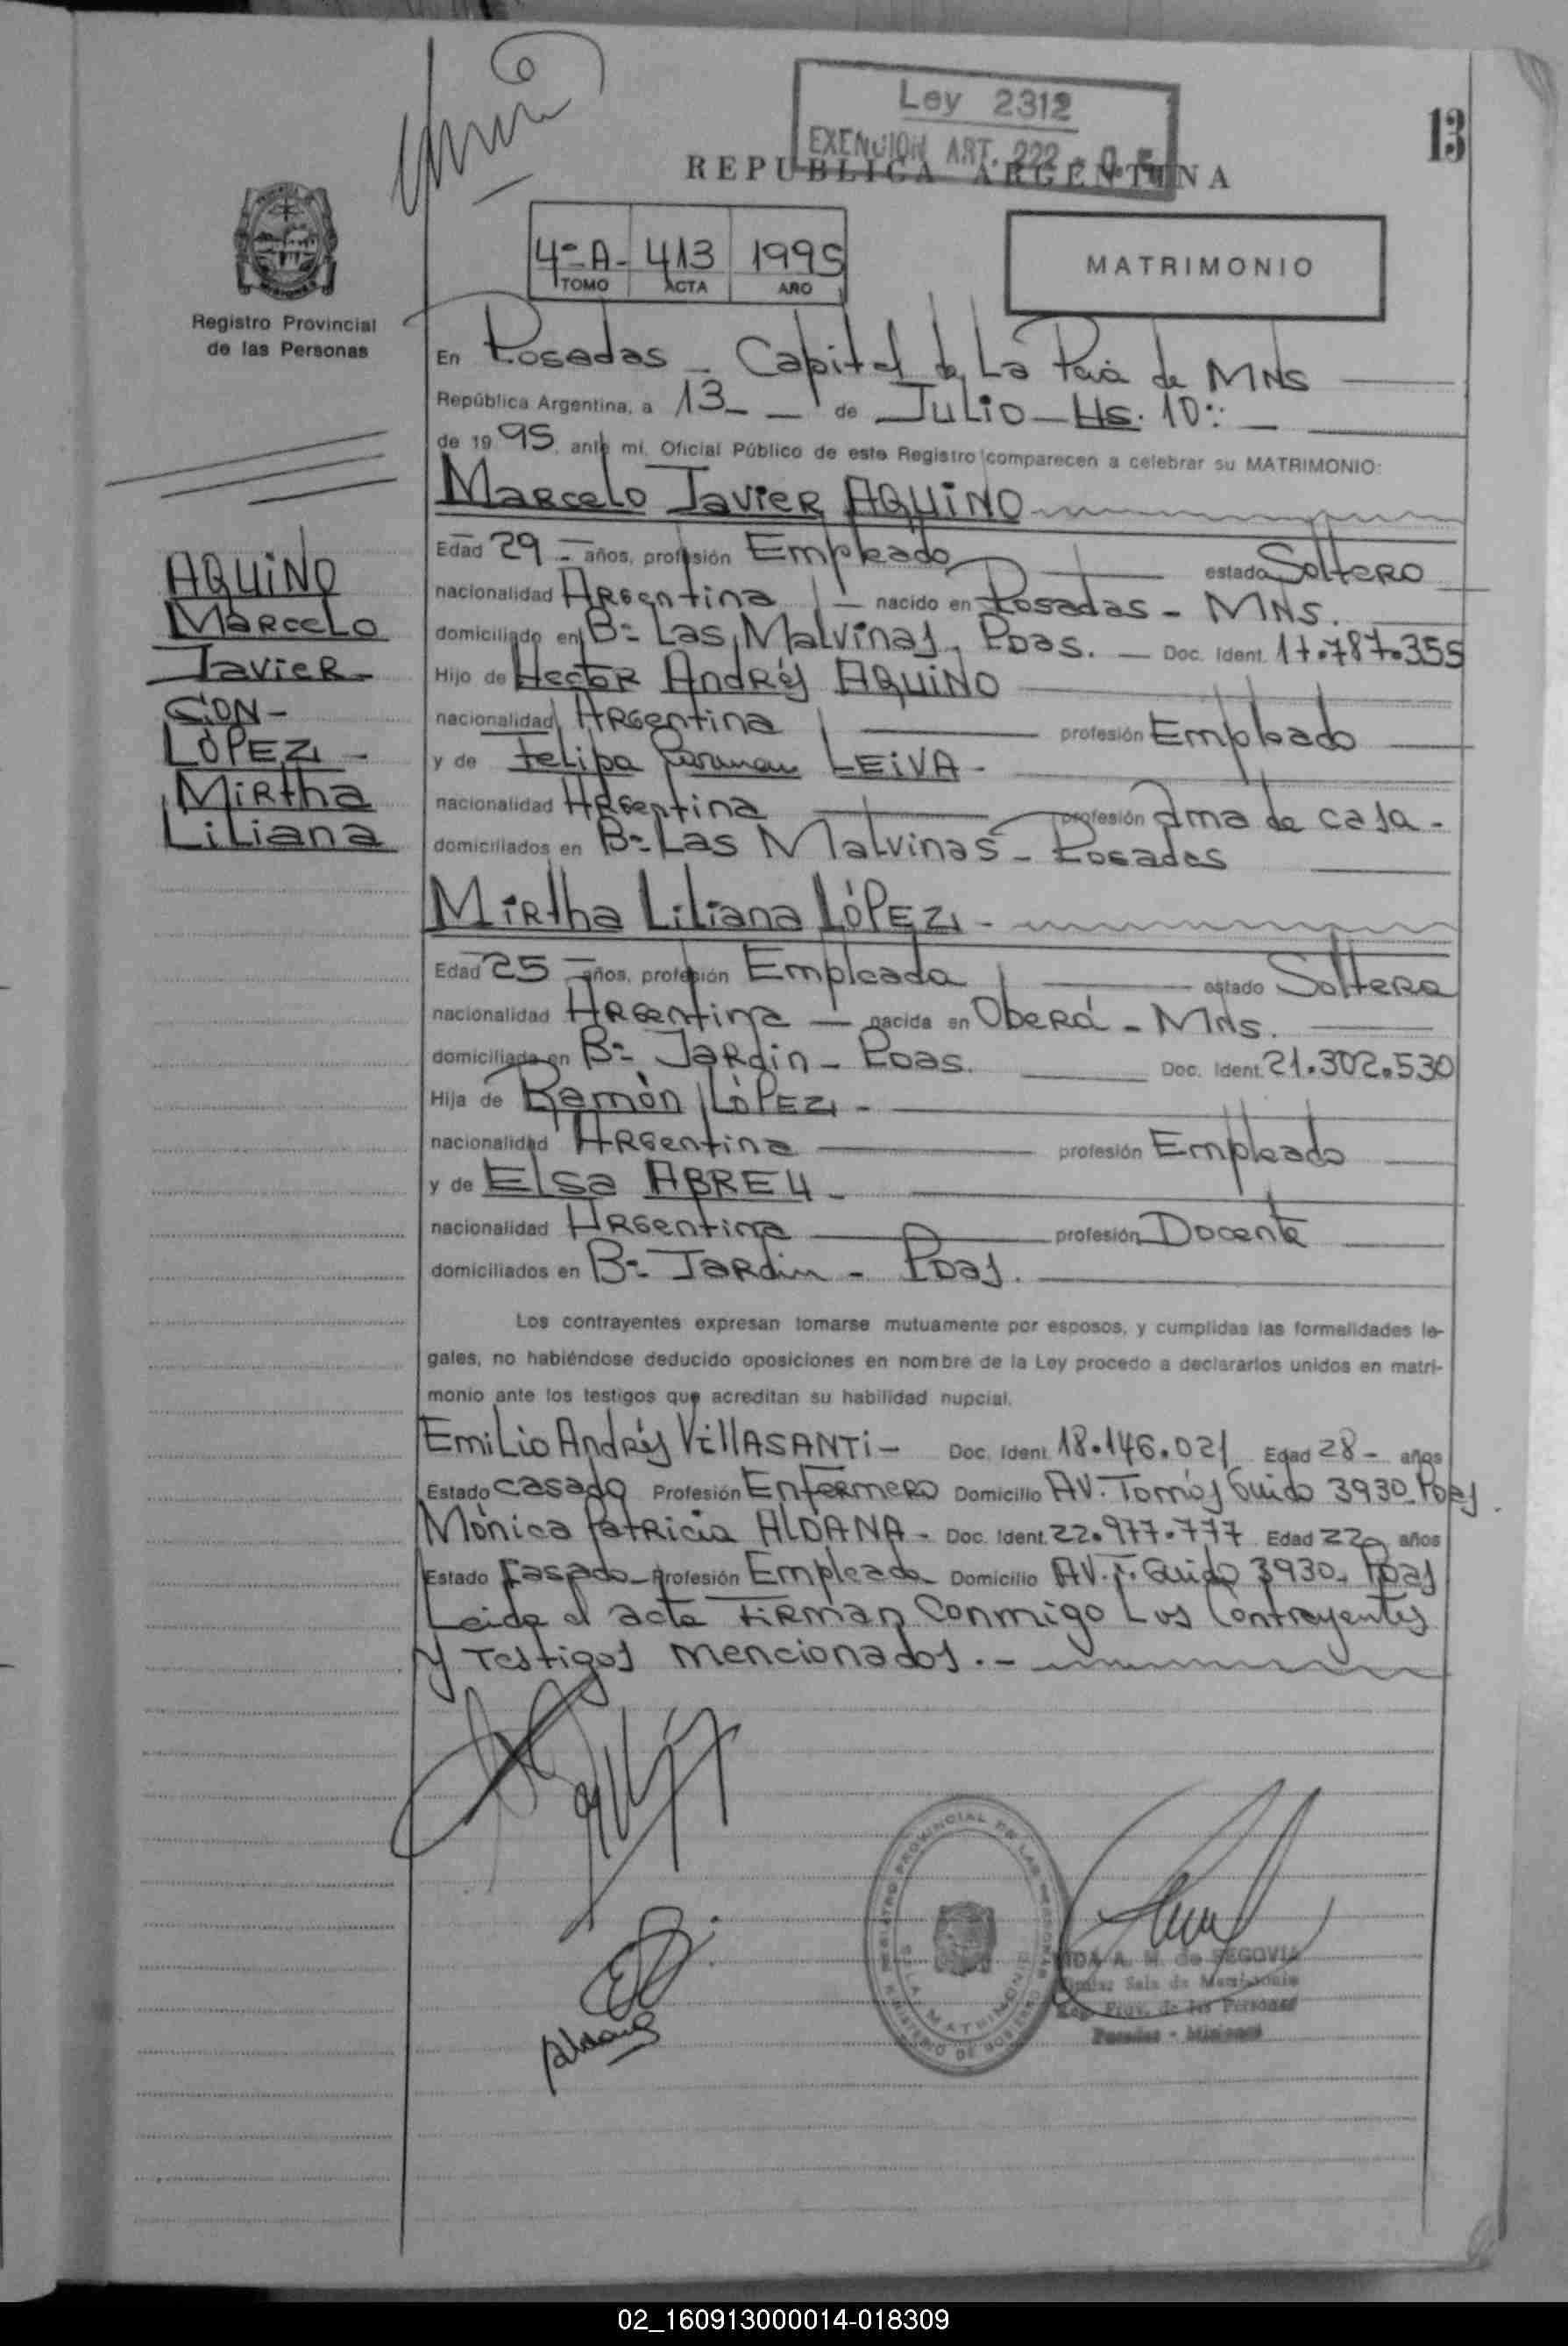 Ley 2312
EXENCION ART. 222
13
REPUBLICA ARGENTINA
4º A- 413 1995
TOMO ACTA AÑO
MATRIMONIO
Registro Provincial
de las Personas
En Posadas - Capital de La Pcia de MNS
República Argentina, a 13 - de Julio - Hs. 10:
de 1995, ante mí, Oficial Público de este Registro comparecen a celebrar su MATRIMONIO:
Marcelo Javier AQUINO
Edad 29 - años, profesión Empleado estado Soltero
nacionalidad Argentina - nacido en Posadas - MNS.
domiciliado en Bº Las Malvinas, Pdas. - Doc. Ident. 17.787.355
Hijo de Hector Andrés AQUINO
nacionalidad Argentina profesión Empleado
y de Felipa LEIVA -
nacionalidad Argentina profesión Ama de casa -
domiciliados en Bº Las Malvinas - Posadas
AQUINO
Marcelo
Javier -
CON -
LÓPEZ -
Mirtha
Liliana
Mirtha Liliana LÓPEZ -
Edad 25 - años, profesión Empleada estado Soltera
nacionalidad Argentina - nacida en Oberá - MNS.
domiciliada en Bº Jardin - Pdas. Doc. Ident. 21.302.530
Hija de Ramón LÓPEZ -
nacionalidad Argentina profesión Empleado
y de Elsa ABREU -
nacionalidad Argentina profesión Docente
domiciliados en Bº Jardin - Pdas.
Los contrayentes expresan tomarse mutuamente por esposos, y cumplidas las formalidades le-
gales, no habiéndose deducido oposiciones en nombre de la Ley procedo a declararlos unidos en matri-
monio ante los testigos que acreditan su habilidad nupcial.
Emilio Andrés VillASANTi - Doc. Ident. 18.146.021 Edad 28 - años
Estado casado Profesión Enfermero Domicilio AV. Tomás Guido 3930. Pdas.
Mónica Patricia ALDANA - Doc. Ident. 22.977.777 Edad 22 años
Estado Casado - Profesión Empleada Domicilio AV. T. Guido 3930. Pdas
Leida el acta Firman Conmigo Los Contrayentes
y Testigos mencionados. -
REGISTRO PROVINCIAL DE LAS PERSONAS
SALA MATRIMONIO
MINISTERIO DE GOBIERNO
Aldana
A. M. de SEGOVIA
Sala de Matrimonio
Reg. Prov. de las Personas
Posadas - Misiones
02_160913000014-018309